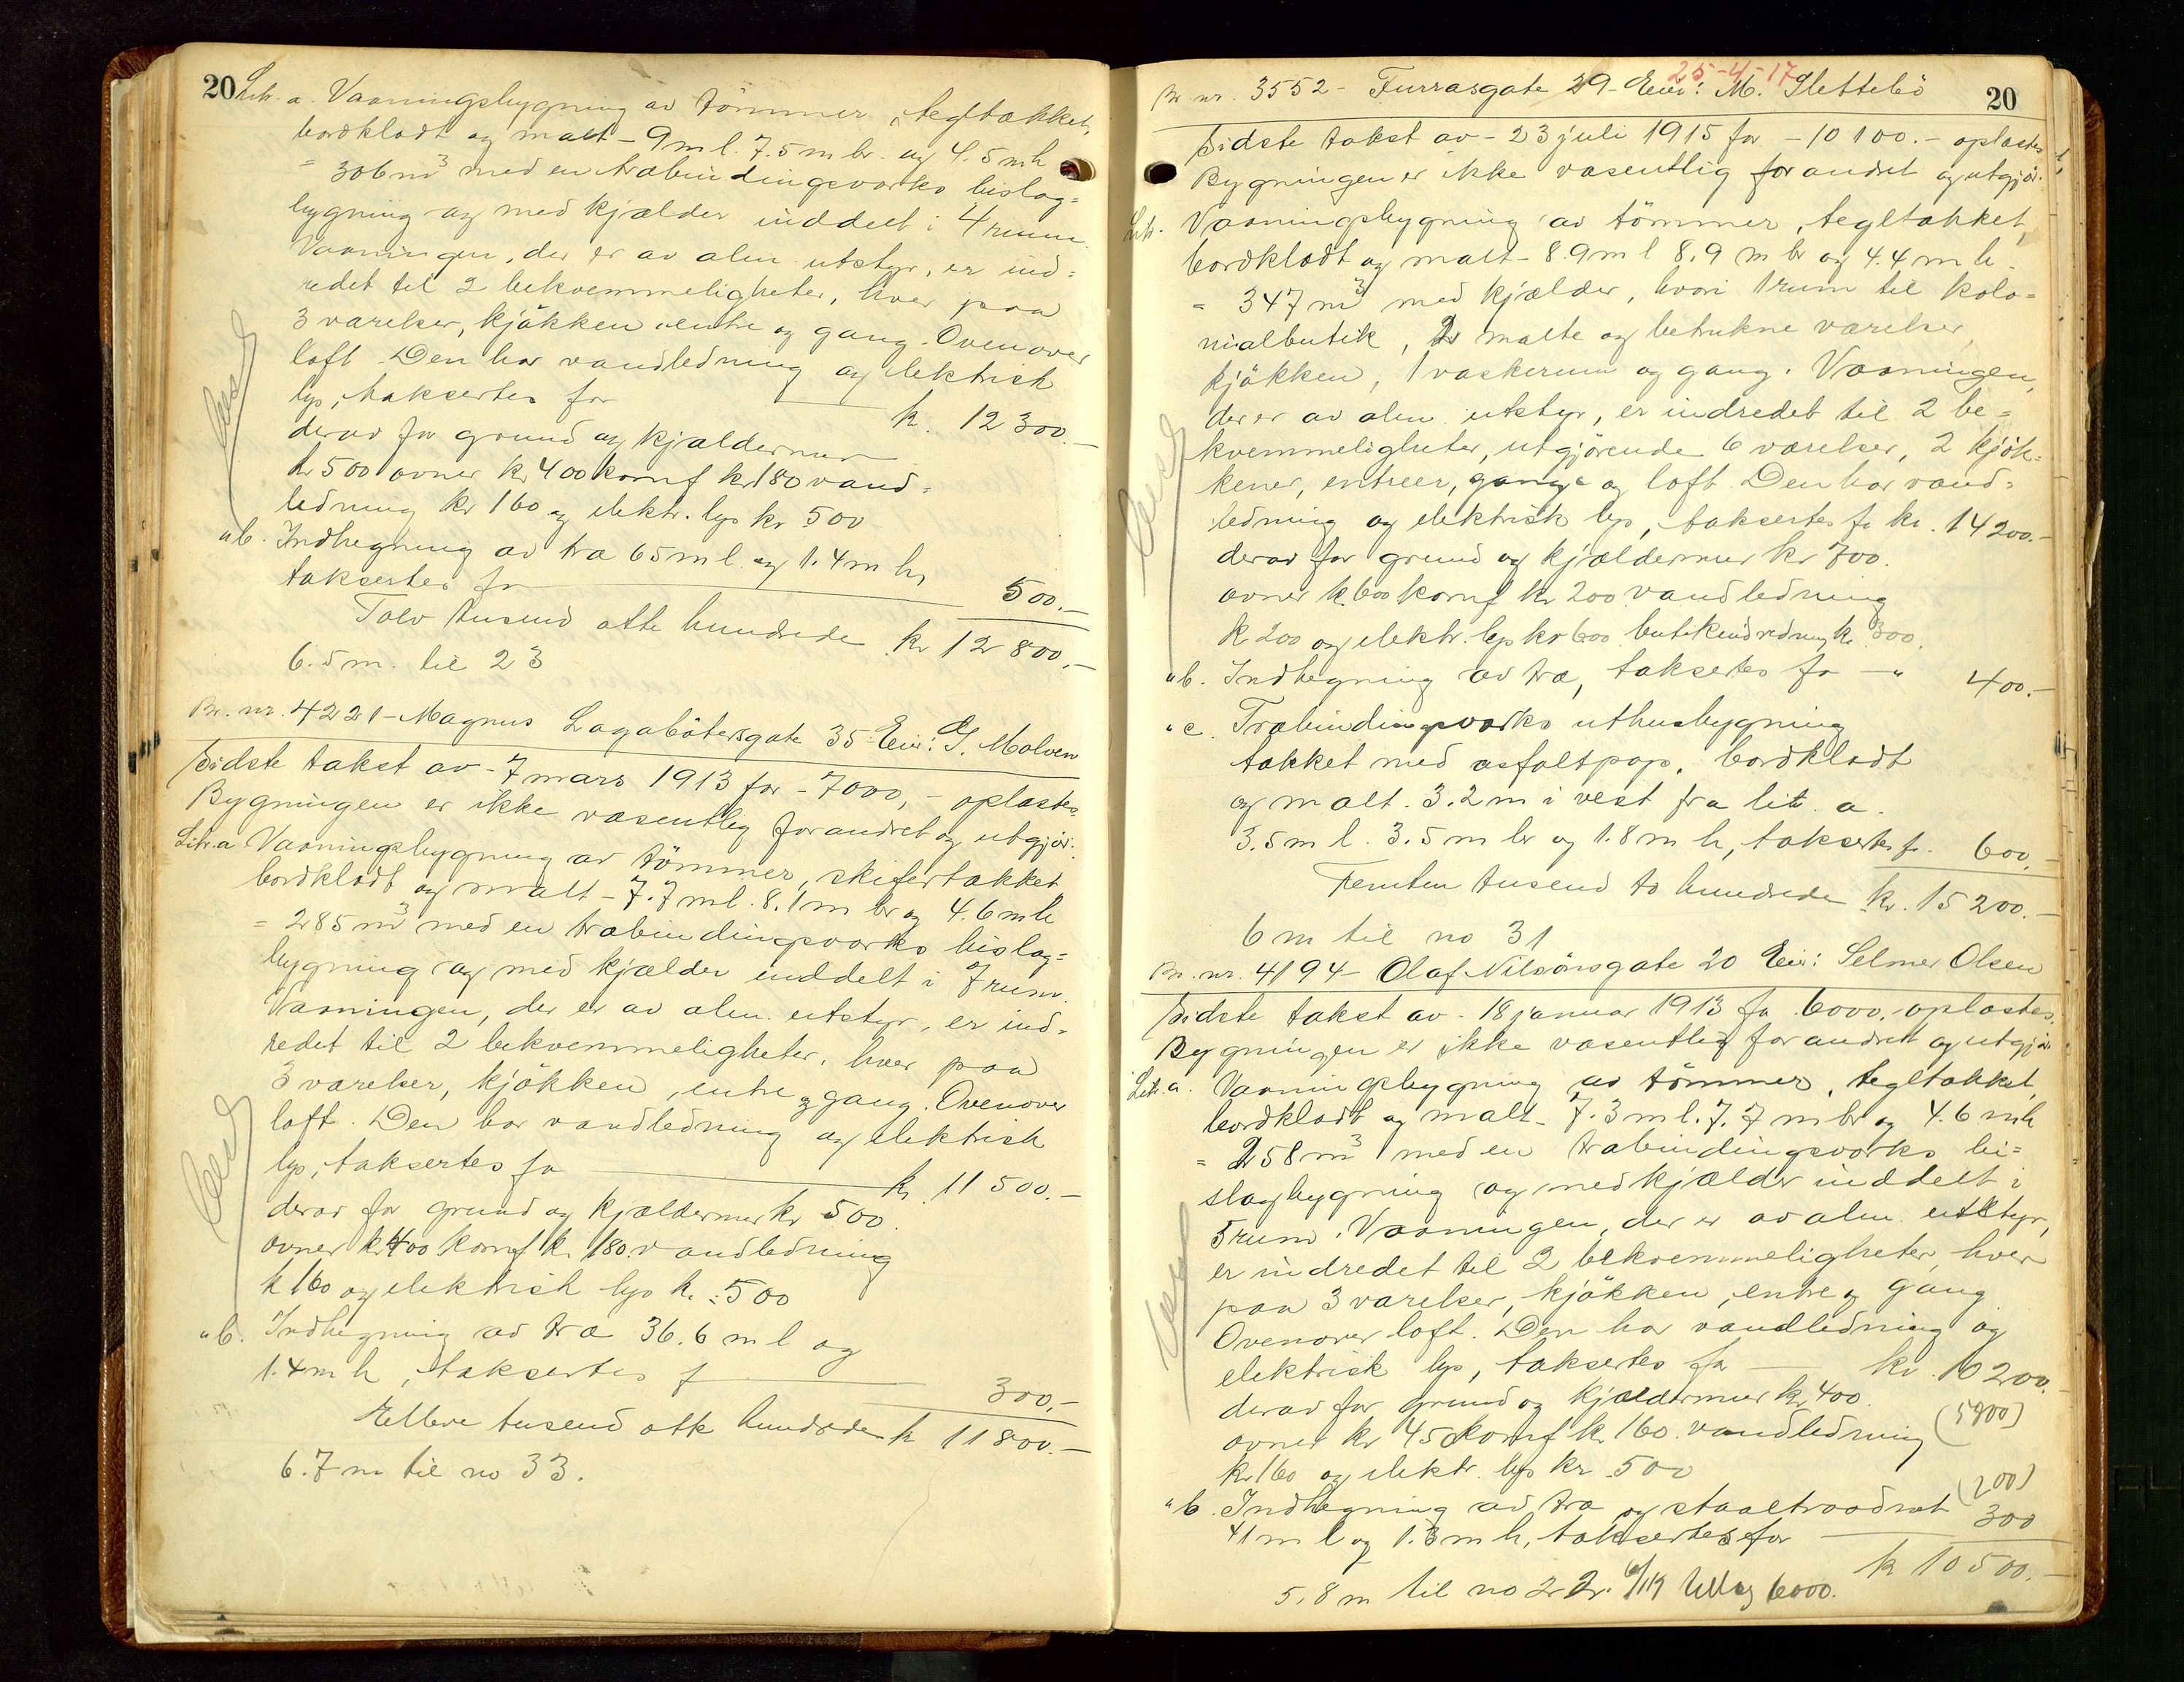 20
Litr. a. Vaaningsbygning av tömmer, tegltækket,
bordklædt og malt - 9 m l. 7.5 m br. og 4.5 m h
= 306 m³ med en træbindingsværks bislag=
bygning og med kjælder inddelt i 4 rum.
Vaaningen, der er av alm. utstyr, er ind=
redet til 2 bekvemmeligheter, hver paa
3 værelser, kjøkken, entre og gang. Ovenover
loft. Den har vandledning og elektrisk
lys, taksertes for kr. 12 300.-
derav for grund og kjældermur
kr 500 ovner kr 400 komf kr 180 vand=
ledning kr 160 og elektr. lys kr 500
" b. Indhegning av træ 65 m l. og 1.4 m h,
taksertes for 500.-
Tolv tusend otte hundrede kr 12 800.-
6.5 m. til 23
Br. nr. 4221 - Magnus Lagabötersgate 35 Eier: G. Molven
Sidste takst av - 7 mars 1913 for - 7000,- oplæstes.
Bygningen er ikke væsentlig forandret og utgjör:
Litr. a Vaaningsbygning av tömmer, skifertækket
bordklædt og malt - 7.7 m l. 8.1 m br og 4.6 m h
= 285 m³ med en træbindingsværks bislag=
bygning og med kjælder inddelt i 7 rum.
Vaaningen, der er av alm. utstyr, er ind=
redet til 2 bekvemmeligheter, hver paa
3 værelser, kjökken, entre og gang. Ovenover
loft. Den har vandledning og elektrisk
lys, taksertes for kr. 11 500.-
derav for grund og kjældermur kr 500.
ovner kr 400 komf kr. 180. vandledning
kr 160 og elektrisk lys kr. 500
" b. Indhegning av træ 36.6 m l og
1.4 m h, taksertes f 300.-
Elleve tusend otte hundrede kr 11 800.-
6.7 m til no 33.
25-4-17
Br. nr. 3552 - Furrasgate 29 - Eier: M. Slettebö
20
Sidste takst av - 23 juli 1915 for - 10 100.- oplæstes
Bygningen er ikke væsentlig forandret og utgjör:
Litr. Vaaningsbygning av tömmer, tegltækket,
bordklædt og malt - 8.9 m l 8.9 m br og 4.4 m h.
= 347 m³ med kjælder, hvori 1 rum til kolo=
nialbutik, 2 malte og betrukne værelser,
kjökken, 1 vaskerum og gang. Vaaningen,
der er av alm. utstyr, er indredet til 2 be=
kvemmeligheter, utgjörende 6 værelser, 2 kjök=
kener, entreer, gange og loft. Den har vand=
ledning og elektrisk lys, taksertes for kr. 14 200.-
derav for grund og kjældermur kr 700.
ovner kr. 600 komf kr 200 vandledning
kr 200 og elektr. lys kr 600 butikindredning kr. 300.
" b. Indhegning av træ, taksertes for - " 400.-
" c. Træbindingsværks uthusbygning
tækket med asfaltpap, bordklædt
og malt. 3.2 m i vest fra litr. a.
3.5 m l. 3.5 m br og 1.8 m h, taksertes f. 600.-
Femten tusend to hundrede kr. 15 200.-
6 m til no 31
Br. nr. 4194 - Olaf Nilsönsgate 20 Eier: Selmer Olsen
Sidste takst av - 18 januar 1913 for 6000.- oplæstes.
Bygningen er ikke væsentlig forandret og utgjör
Litr. a. Vaaningsbygning av tömmer, tegltækket,
bordklædt og malt - 7.3 m l. 7.7 m br og 4.6 m h
= 258 m³ med en træbindingsværks bi=
slagbygning og med kjælder inddelt i
5 rum. Vaaningen, der er av alm. utstyr,
er indredet til 2 bekvemmeligheter, hver
paa 3 værelser, kjökken, entre og gang
Ovenover loft. Den har vandledning og
elektrisk lys, taksertes for kr. 10 200.-
derav for grund og kjældermur kr 400.
(5800)
ovner kr 450 komf kr. 160. vandledning
kr 160 og elektr. lys kr 500
(200)
" b. Indhegning av træ og staaltraadnet 300
41 m l og 1.3 m h, taksertes for
kr 10 500.-
5.8 m til no 22. 6000.